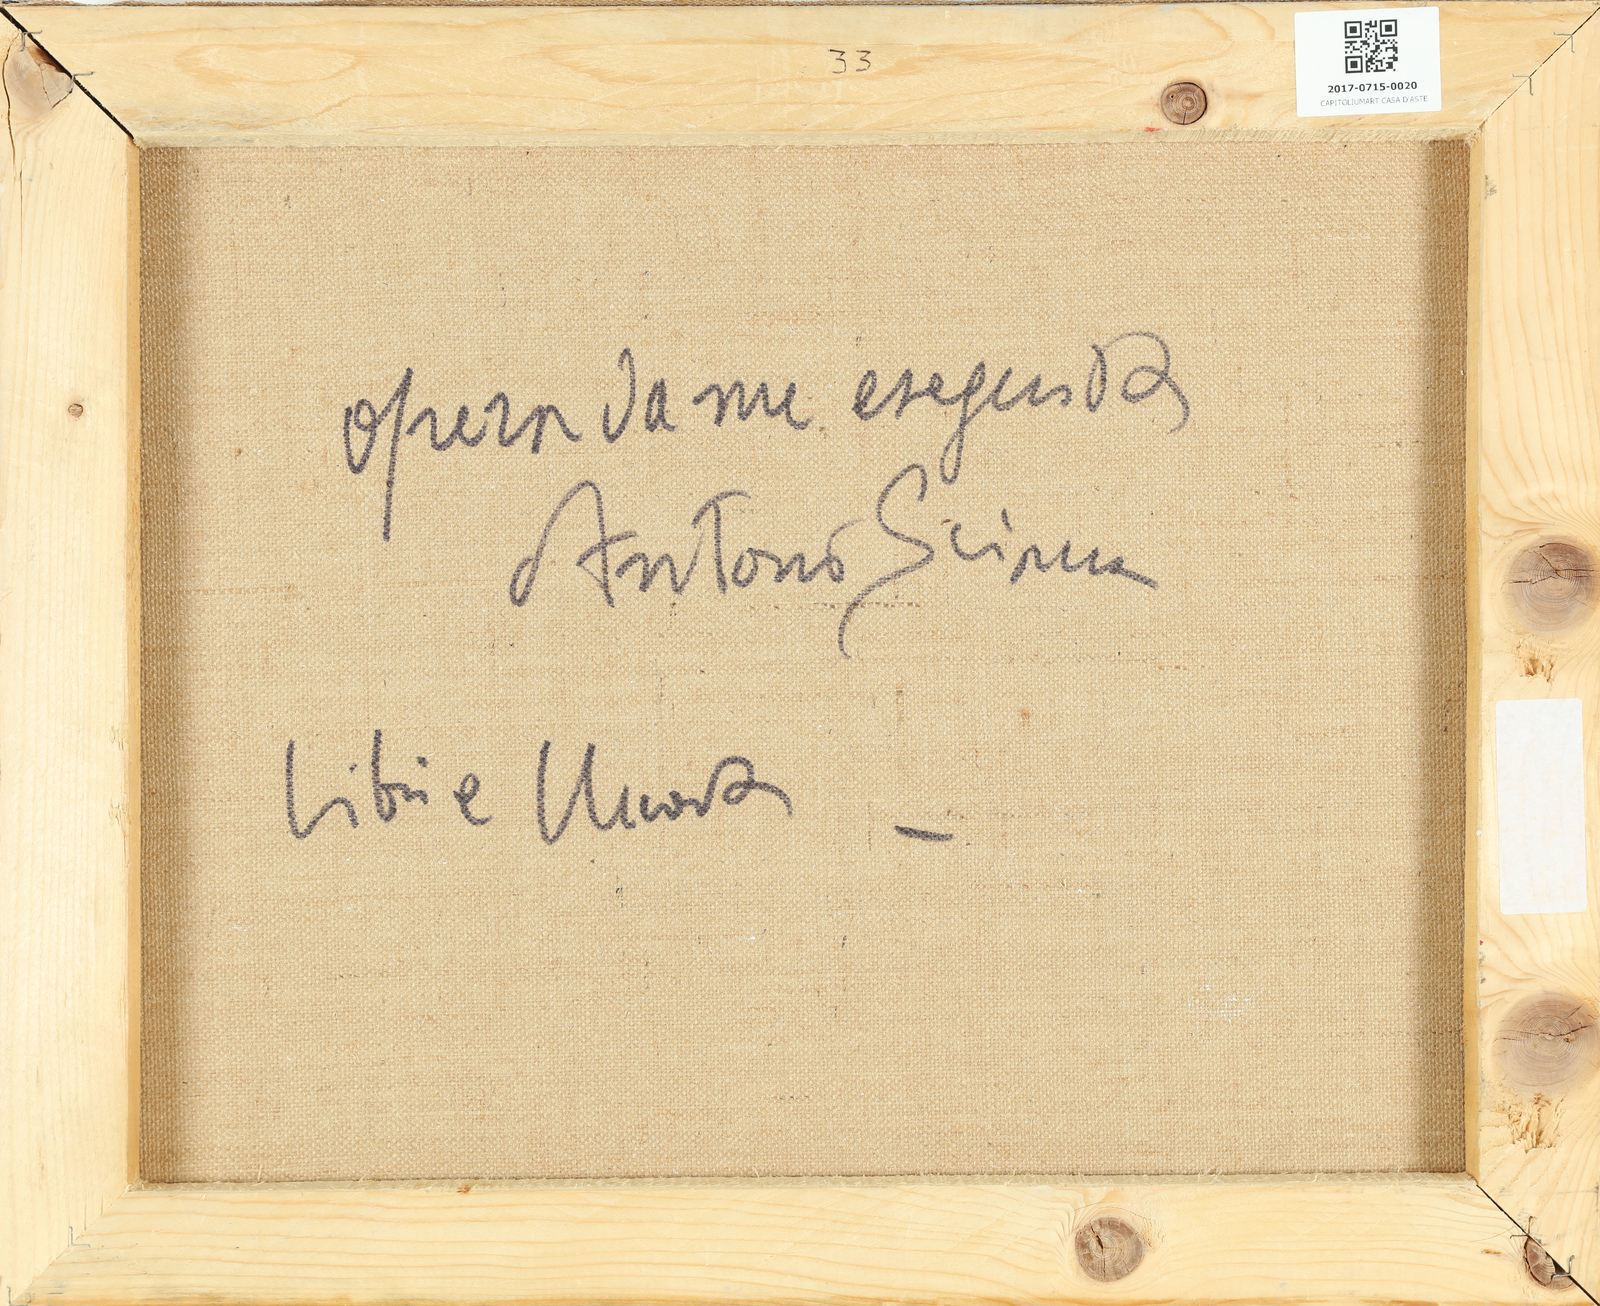 33
2017-0715-0020
CAPITOLIUMART CASA D'ASTE
opera da me eseguita
Antonio Scirea
Libri e